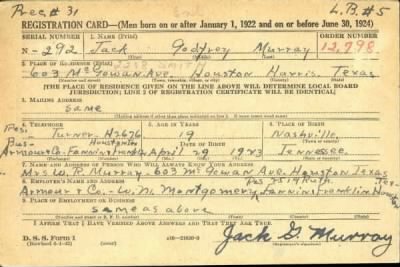 Prec # 31
L.B. #5
REGISTRATION CARD—(Men born on or after January 1, 1922 and on or before June 30, 1924)
SERIAL NUMBER 1. NAME (Print) ORDER NUMBER
N-292 Jack Godfrey Murray 12,798
(First) (Middle) (Last)
2. PLACE OF RESIDENCE (Print)
603 McGowan Ave. Houston Harris Texas
[THE PLACE OF RESIDENCE GIVEN ON THE LINE ABOVE WILL DETERMINE LOCAL BOARD
JURISDICTION; LINE 2 OF REGISTRATION CERTIFICATE WILL BE IDENTICAL]
3. MAILING ADDRESS
same
4. TELEPHONE 5. AGE IN YEARS 6. PLACE OF BIRTH
Res.
19 Nashville
Bus- Houston
DATE OF BIRTH
April 29 1923 Tennessee
7. NAME AND ADDRESS OF PERSON WHO WILL ALWAYS KNOW YOUR ADDRESS
Mrs W. R. Murray-603 McGowan Ave. Houston Texas
8. EMPLOYER'S NAME AND ADDRESS
Armour & Co.- W. N. Montgomery
9. PLACE OF EMPLOYMENT OR BUSINESS
same as above
I AFFIRM THAT I HAVE VERIFIED ABOVE ANSWERS AND THAT THEY ARE TRUE.
D. S. S. Form 1
(Revised 6-1-42)
Jack G. Murray